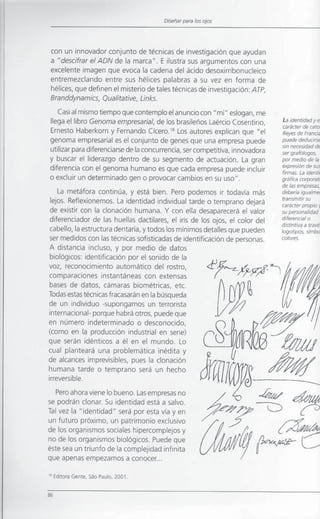 Diseñar para los ojos
con un innovador conjunto de técnicas de investigación que ayudan
a "descifrar el ADN de la marca". E ilustra sus argumentos con una
excelente imagen que evoca la cadena del ácido desoxirribonucleico
entremezclando entre sus hélices palabras a su vez en forma de
hélices, que definen el misterio de tales técnicas de investigación: ATP,
Branddynamics, Qualitative, Links.
Casi al mismo tiempo que contemplo el anuncio con "mi" eslogan, me
llega el libro Genoma empresarial, de los brasileños Laércio Cosentino,
Ernesto Haberkorn y Fernando Cícero.¹⁸ Los autores explican que "el
genoma empresarial es el conjunto de genes que una empresa puede
utilizar para diferenciarse de la concurrencia, ser competitiva, innovadora
y buscar el liderazgo dentro de su segmento de actuación. La gran
diferencia con el genoma humano es que cada empresa puede incluir
o excluir un determinado gen o provocar cambios en su uso".
La metáfora continúa, y está bien. Pero podemos ir todavía más
lejos. Reflexionemos. La identidad individual tarde o temprano dejará
de existir con la clonación humana. Y con ella desaparecerá el valor
diferenciador de las huellas dactilares, el iris de los ojos, el color del
cabello, la estructura dentaria, y todos los mínimos detalles que pueden
ser medidos con las técnicas sofisticadas de identificación de personas.
A distancia incluso, y por medio de datos
biológicos: identificación por el sonido de la
voz, reconocimiento automático del rostro,
comparaciones instantáneas con extensas
bases de datos, cámaras biométricas, etc.
Todas estas técnicas fracasarán en la búsqueda
de un individuo -supongamos un terrorista
internacional- porque habrá otros, puede que
en número indeterminado o desconocido,
(como en la producción industrial en serie)
que serán idénticos a él en el mundo. Lo
cual planteará una problemática inédita y
de alcances imprevisibles, pues la clonación
humana tarde o temprano será un hecho
irreversible.
Pero ahora viene lo bueno. Las empresas no
se podrán clonar. Su identidad está a salvo.
Tal vez la "identidad" será por esta vía y en
un futuro próximo, un patrimonio exclusivo
de los organismos sociales hipercomplejos y
no de los organismos biológicos. Puede que
éste sea un triunfo de la complejidad infinita
que apenas empezamos a conocer...
¹⁸ Editora Gente, São Paulo, 2001.
86
La identidad y e
carácter de
Reyes de Francia
puede deducirse
sin necesidad de
ser grafólogos,
por medio de la
expresión de sus
firmas. La
gráfica
de las empresas,
debería
transmitir su
carácter propio y
su personalidad
diferencial o
distintiva a través
logotipos,
colores.